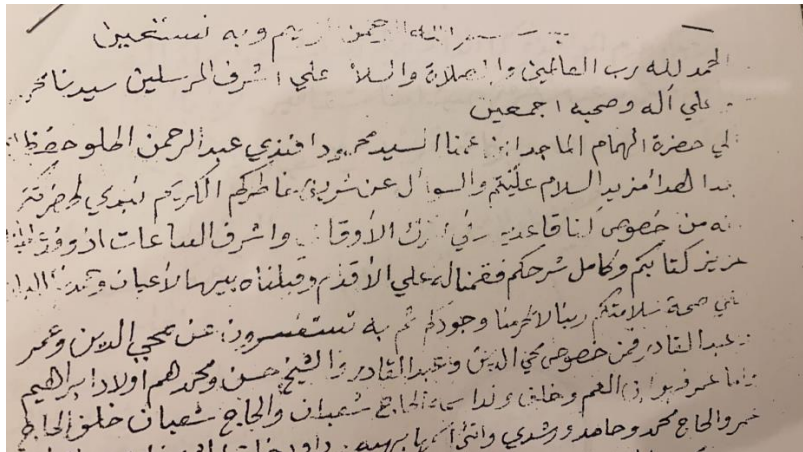 بسم الله الرحمن الرحيم وبه نستعين
الحمد لله رب العالمين والصلاة والسلام علي اشرف المرسلين سيدنا محمد
علي آله وصحبه اجمعين
الي حضرة الهمام الماجد ابن عمنا السيد محمود افندي عبد الرحمن الحلو حفظ
مزيد السلام عليكم والسوأل عن شريف خاطركم الكريم نبدي لحضرتكم
انه من خصوص اننا قاعدين في ابرك الأوقات واشرف الساعات اذ وفد
عزيز كتابكم وكامل شرحكم فقمنا له علي الأقدام وقبلناه بيد الأعيان
علي صحة سلامتكم ربنا لا يحرمنا وجودكم ثم به تستفسرون عن محي الدين وعمر
وعبد القادر فمن خصوص محي الدين وعبد القادر والشيخ حسن ومحمد هم اولاد ابراهيم
واما عمر فهو ابن العم وخلف ولدا اسمه الحاج شعبان والحاج شعبان خلف الحاج
عمر والحاج محمد وحامد ورشدي وانثى اسمها بهيه